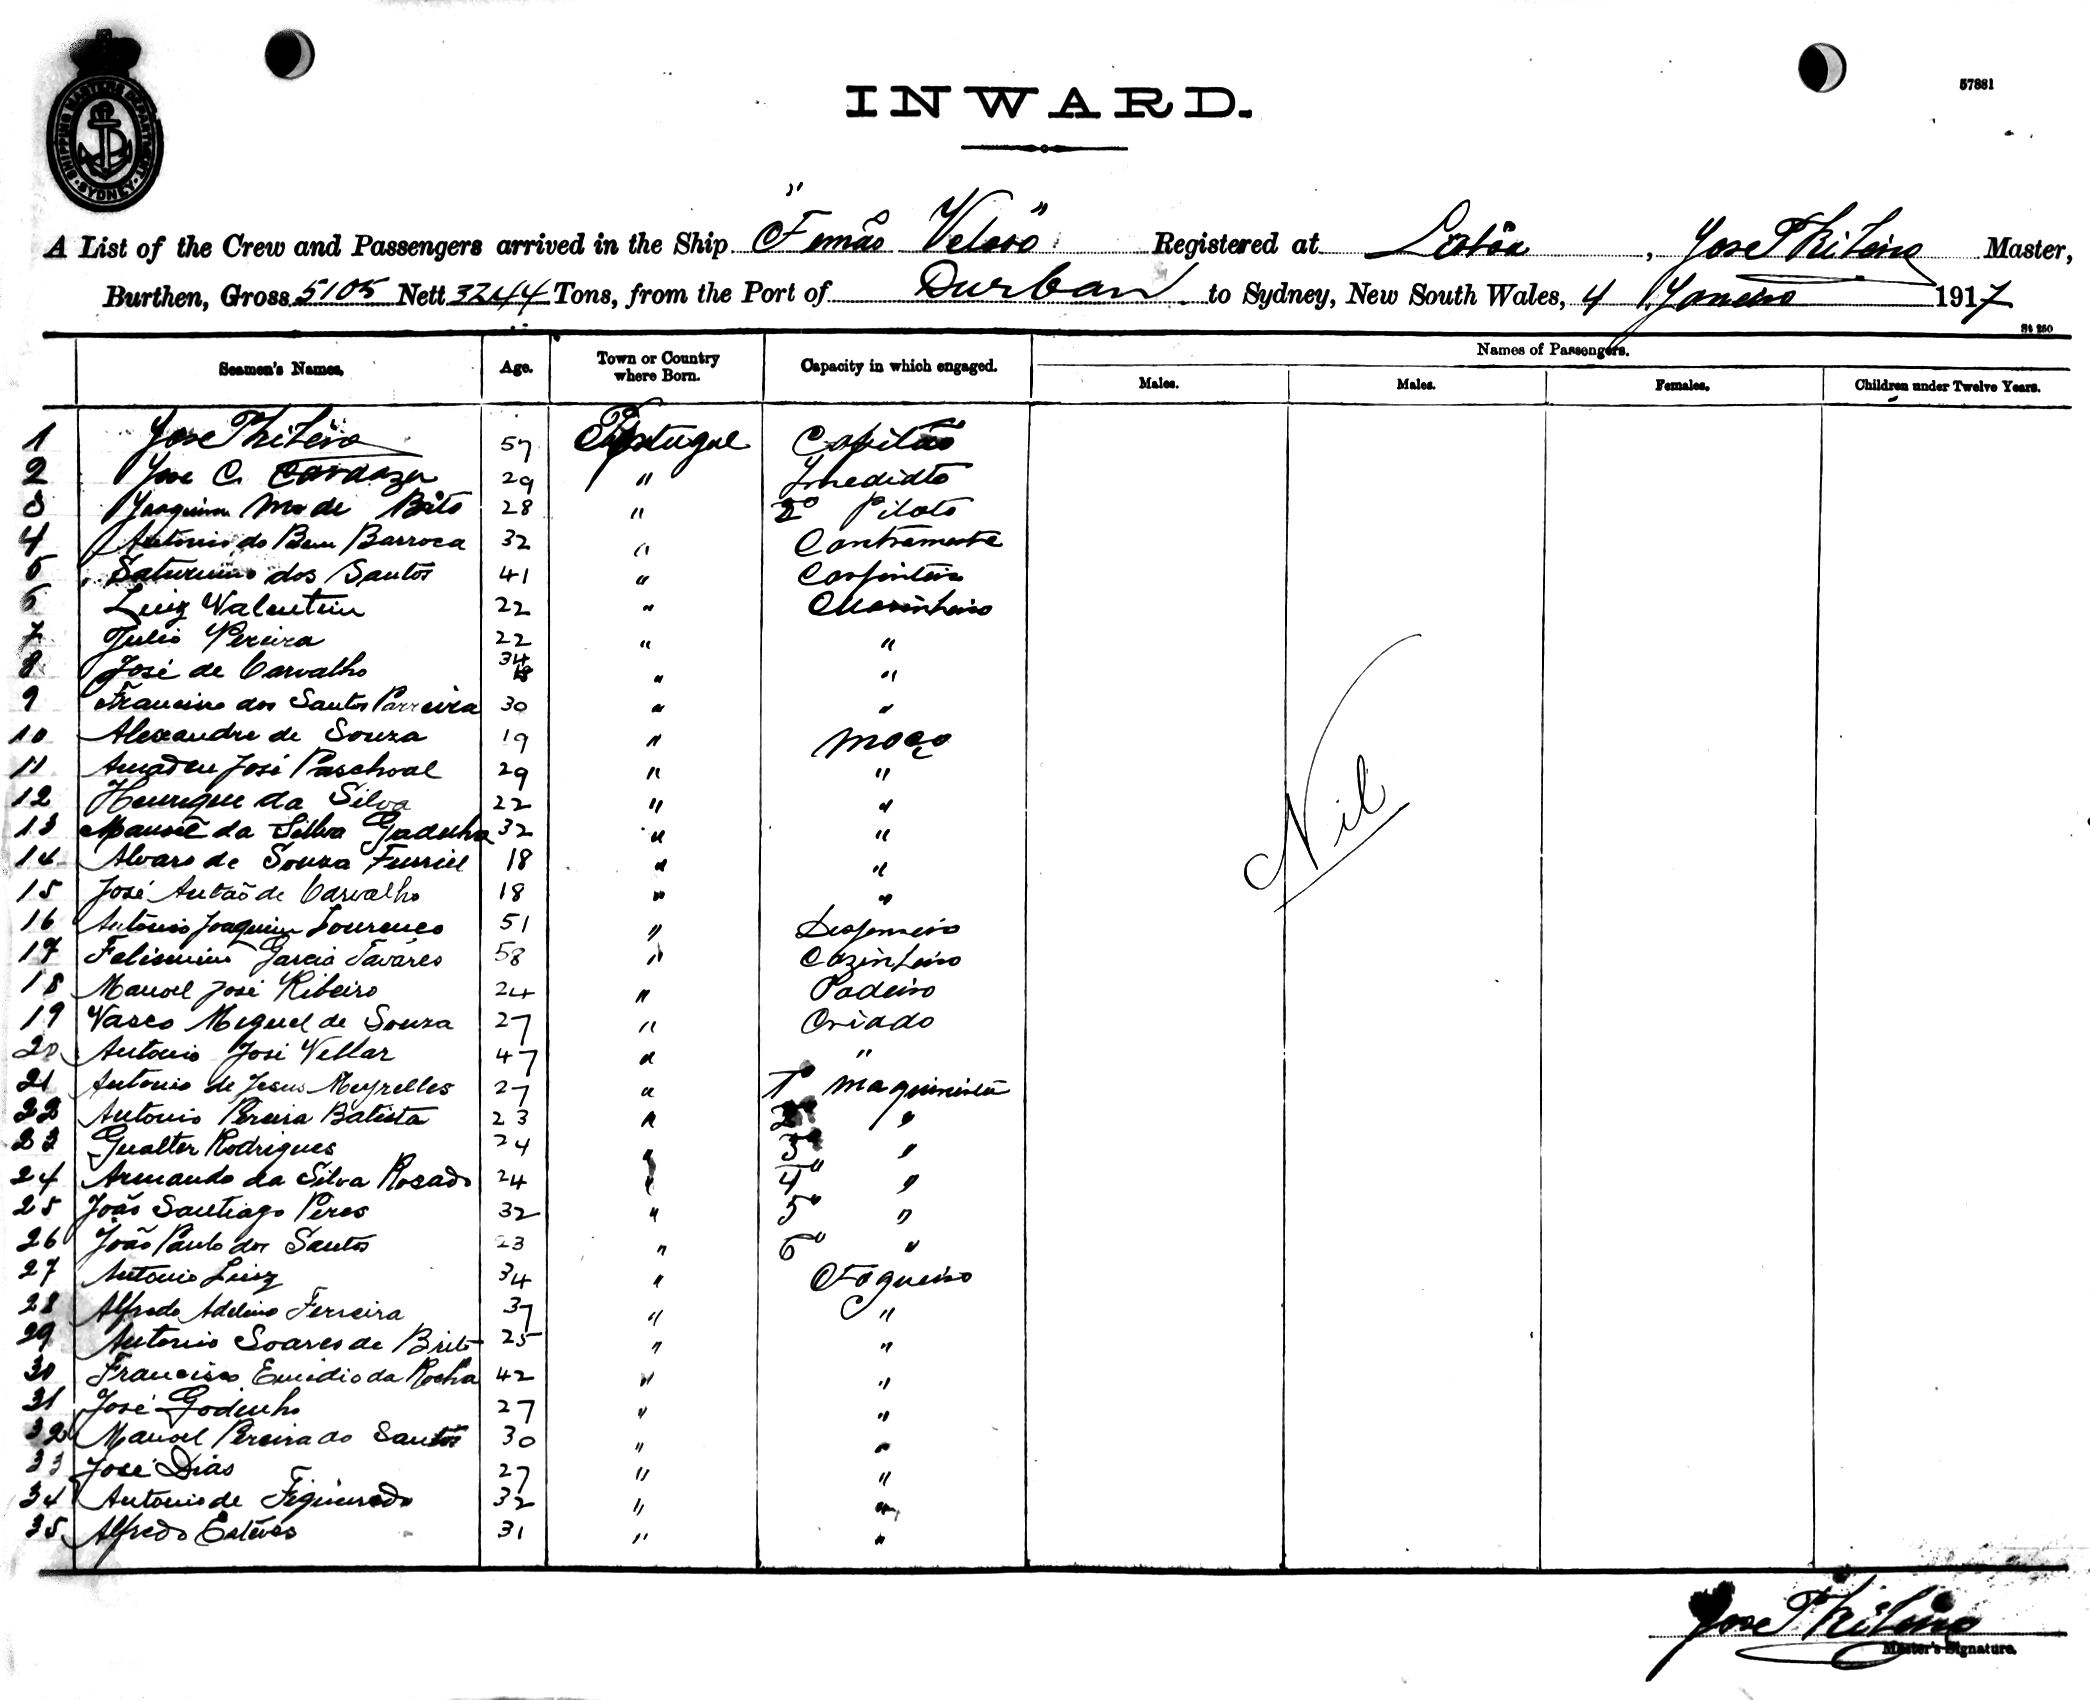 SHIPPING MASTERS DEPARTMENT
SYDNEY
57881
INWARD.
A List of the Crew and Passengers arrived in the Ship "Fernão Veloso" Registered at Lisbôa, Jose Master,
Burthen, Gross 5105 Nett 3244 Tons, from the Port of Durban to Sydney, New South Wales, 4 Janeiro 1917
St 250
Seamen's Names. Age. Town or Country where Born. Capacity in which engaged. Names of Passengers.
Males. Males. Females. Children under Twelve Years.
1 Jose 57 Portugal Capitão
2 Jose C. Cardozo 29 " Imediato
3 Joaquim M. de Brito 28 " 2º Piloto
4 Antonio do Bem Barroca 32 " Contramestre
5 Saturnino dos Santos 41 " Carpinteiro
6 Luiz Valentim 22 " Marinheiro
7 Julio Pereira 22 " "
8 José de Carvalho 34 " "
9 Francisco dos Santos Parreira 30 " "
10 Alexandre de Souza 19 " Moço
11 Amadeu José Paschoal 29 " "
12 Henrique da Silva 22 " "
13 Manoel da Silva Gadelha 32 " "
14 Alvaro de Souza Furriel 18 " "
15 José Antão de Carvalho 18 " "
16 Antonio Joaquim Lourenço 51 " Despenseiro
17 Felismino Garcia Tavares 58 " Cozinheiro
18 Manoel José Ribeiro 24 " Padeiro
19 Vasco Miguel de Souza 27 " Criado
20 Antonio José Vellar 47 " "
21 Antonio de Jesus Meyrelles 27 " 1º Maquinista
22 Antonio Pereira Batista 23 " 2º "
23 Gualter Rodrigues 24 " 3º "
24 Armando da Silva Rosado 24 " 4º "
25 João Santiago Peres 32 " 5º "
26 João Paulo dos Santos 23 " 6º "
27 Antonio Luiz 34 " Fogueiro
28 Alfredo Adelino Ferreira 37 " "
29 Antonio Soares de Brito 25 " "
30 Francisco Emidio da Rocha 42 " "
31 José Godinho 27 " "
32 Manoel Pereira do Santos 30 " "
33 José Dias 27 " "
34 Antonio de Figueiredo 32 " "
35 Alfredo Esteves 31 " "
Nil
Jose
Master's Signature.